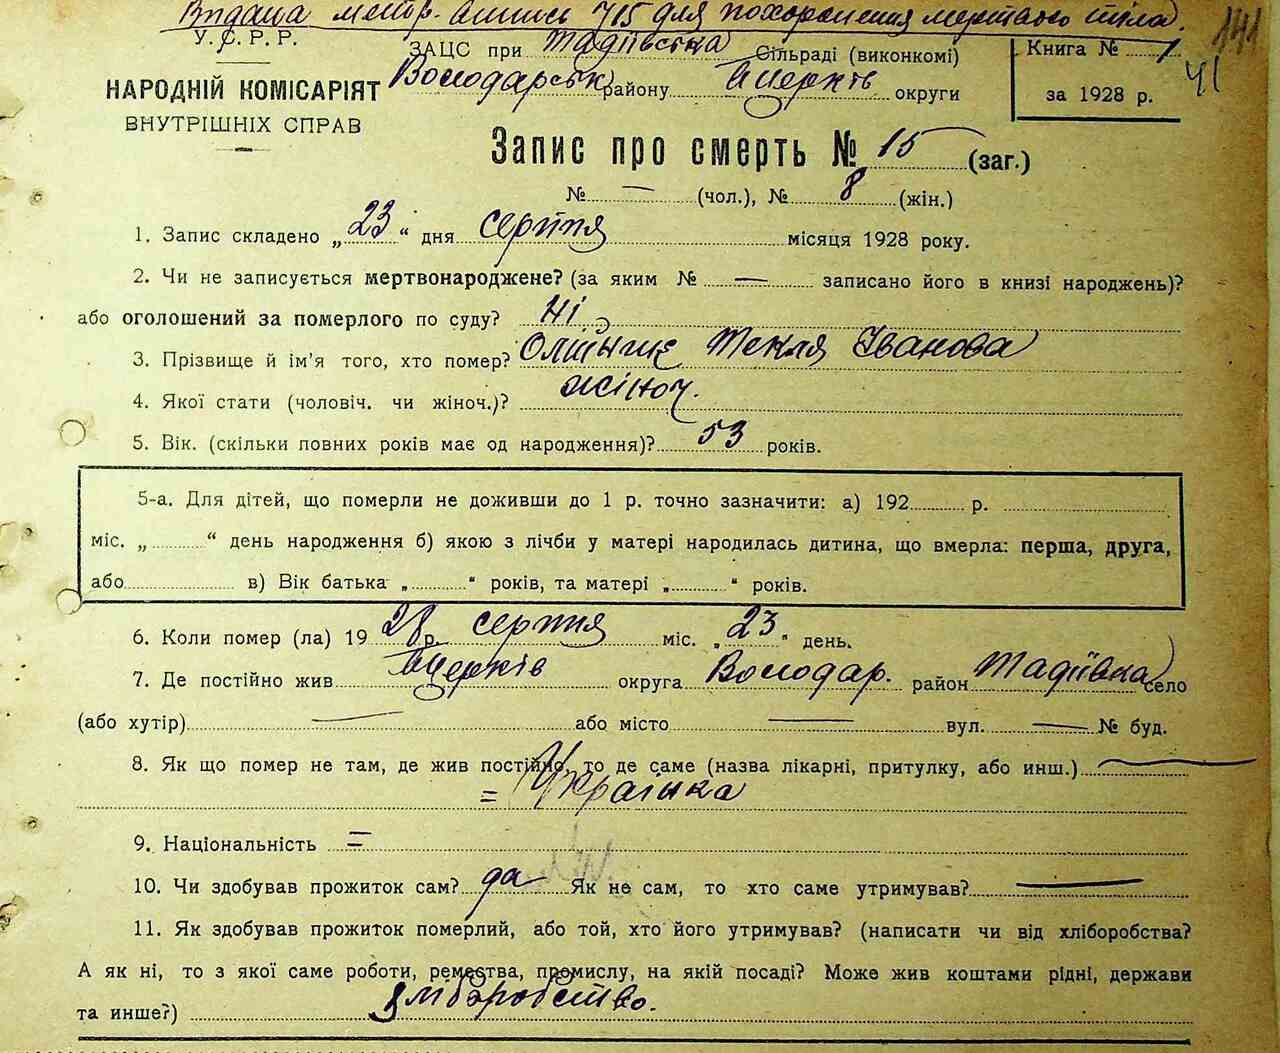 Видана метр. випись №15 для похоронення мертвого тіла.
141
У.С.Р.Р.
ЗАЦС при Тадіївська Сільраді (виконкомі)
Книга № 1
41
НАРОДНІЙ КОМІСАРІЯТ
Володарськ району Б Церків округи
за 1928 р.
ВНУТРІШНІХ СПРАВ
Запис про смерть № 15 (заг.)
№ — (чол.), № 8 (жін.)
1. Запис складено „23“ дня серпня місяця 1928 року.
2. Чи не записується мертвонароджене? (за яким № — записано його в книзі народжень)?
або оголошений за померлого по суду? Ні
3. Прізвище й ім'я того, хто помер? Текля Іванова
4. Якої стати (чоловіч. чи жіноч.)? жіноч.
5. Вік. (скільки повних років має од народження)? 53 років.
5-а. Для дітей, що померли не доживши до 1 р. точно зазначити: а) 192 р.
міс. „ “ день народження б) якою з лічби у матері народилась дитина, що вмерла: перша, друга,
або в) Вік батька „ “ років, та матері „ “ років.
6. Коли помер (ла) 1928 р. серпня міс. „23“ день.
7. Де постійно жив Б Церків округа Володар. район Тадіївка село
(або хутір) — або місто — вул. — № буд.
8. Як що помер не там, де жив постійно, то де саме (назва лікарні, притулку, або инш.) —
= Українка
9. Національність =
10. Чи здобував прожиток сам? да Як не сам, то хто саме утримував? —
11. Як здобував прожиток померлий, або той, хто його утримував? (написати чи від хліборобства?
А як ні, то з якої саме роботи, ремества, промислу, на якій посаді? Може жив коштами рідні, держави
та инше?) хліборобство.